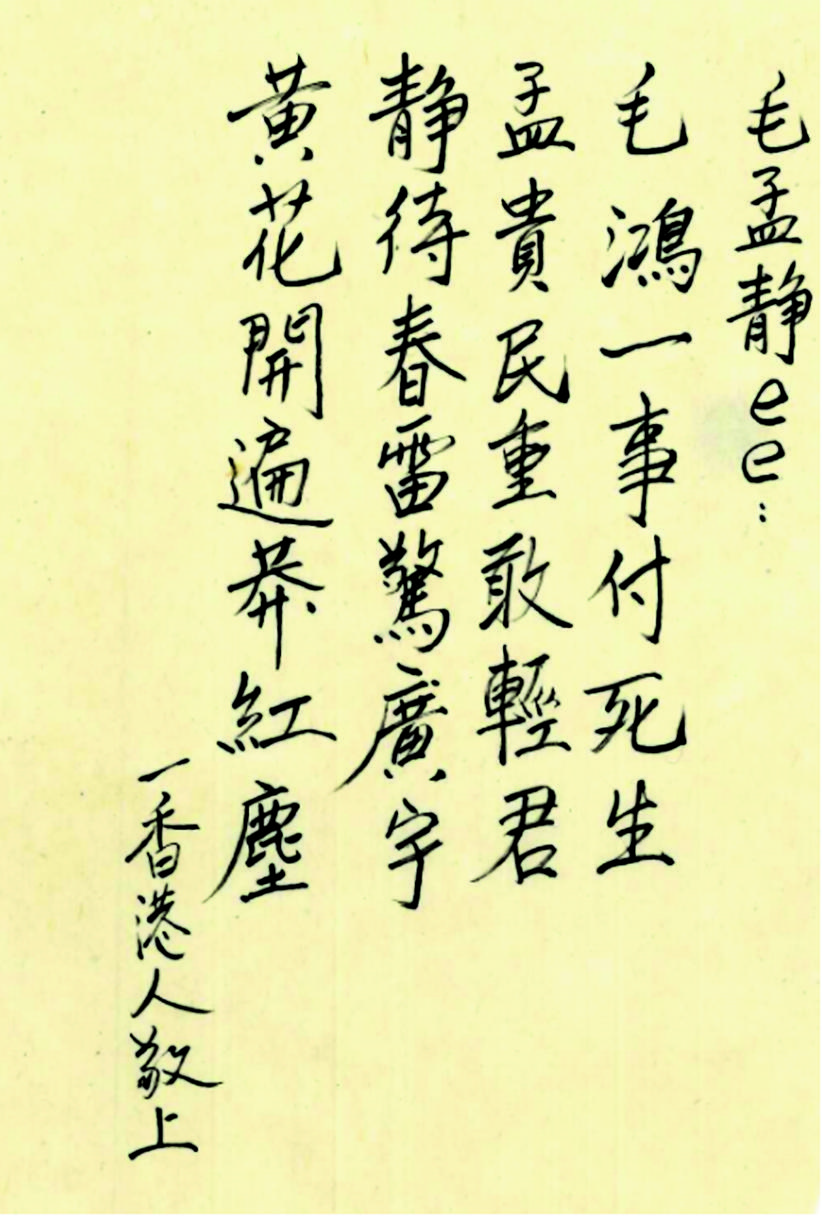 毛孟静ee：
毛鴻一事付死生
孟貴民重敢輕君
静待春雷驚廣宇
黃花開遍莽紅塵
一香港人敬上